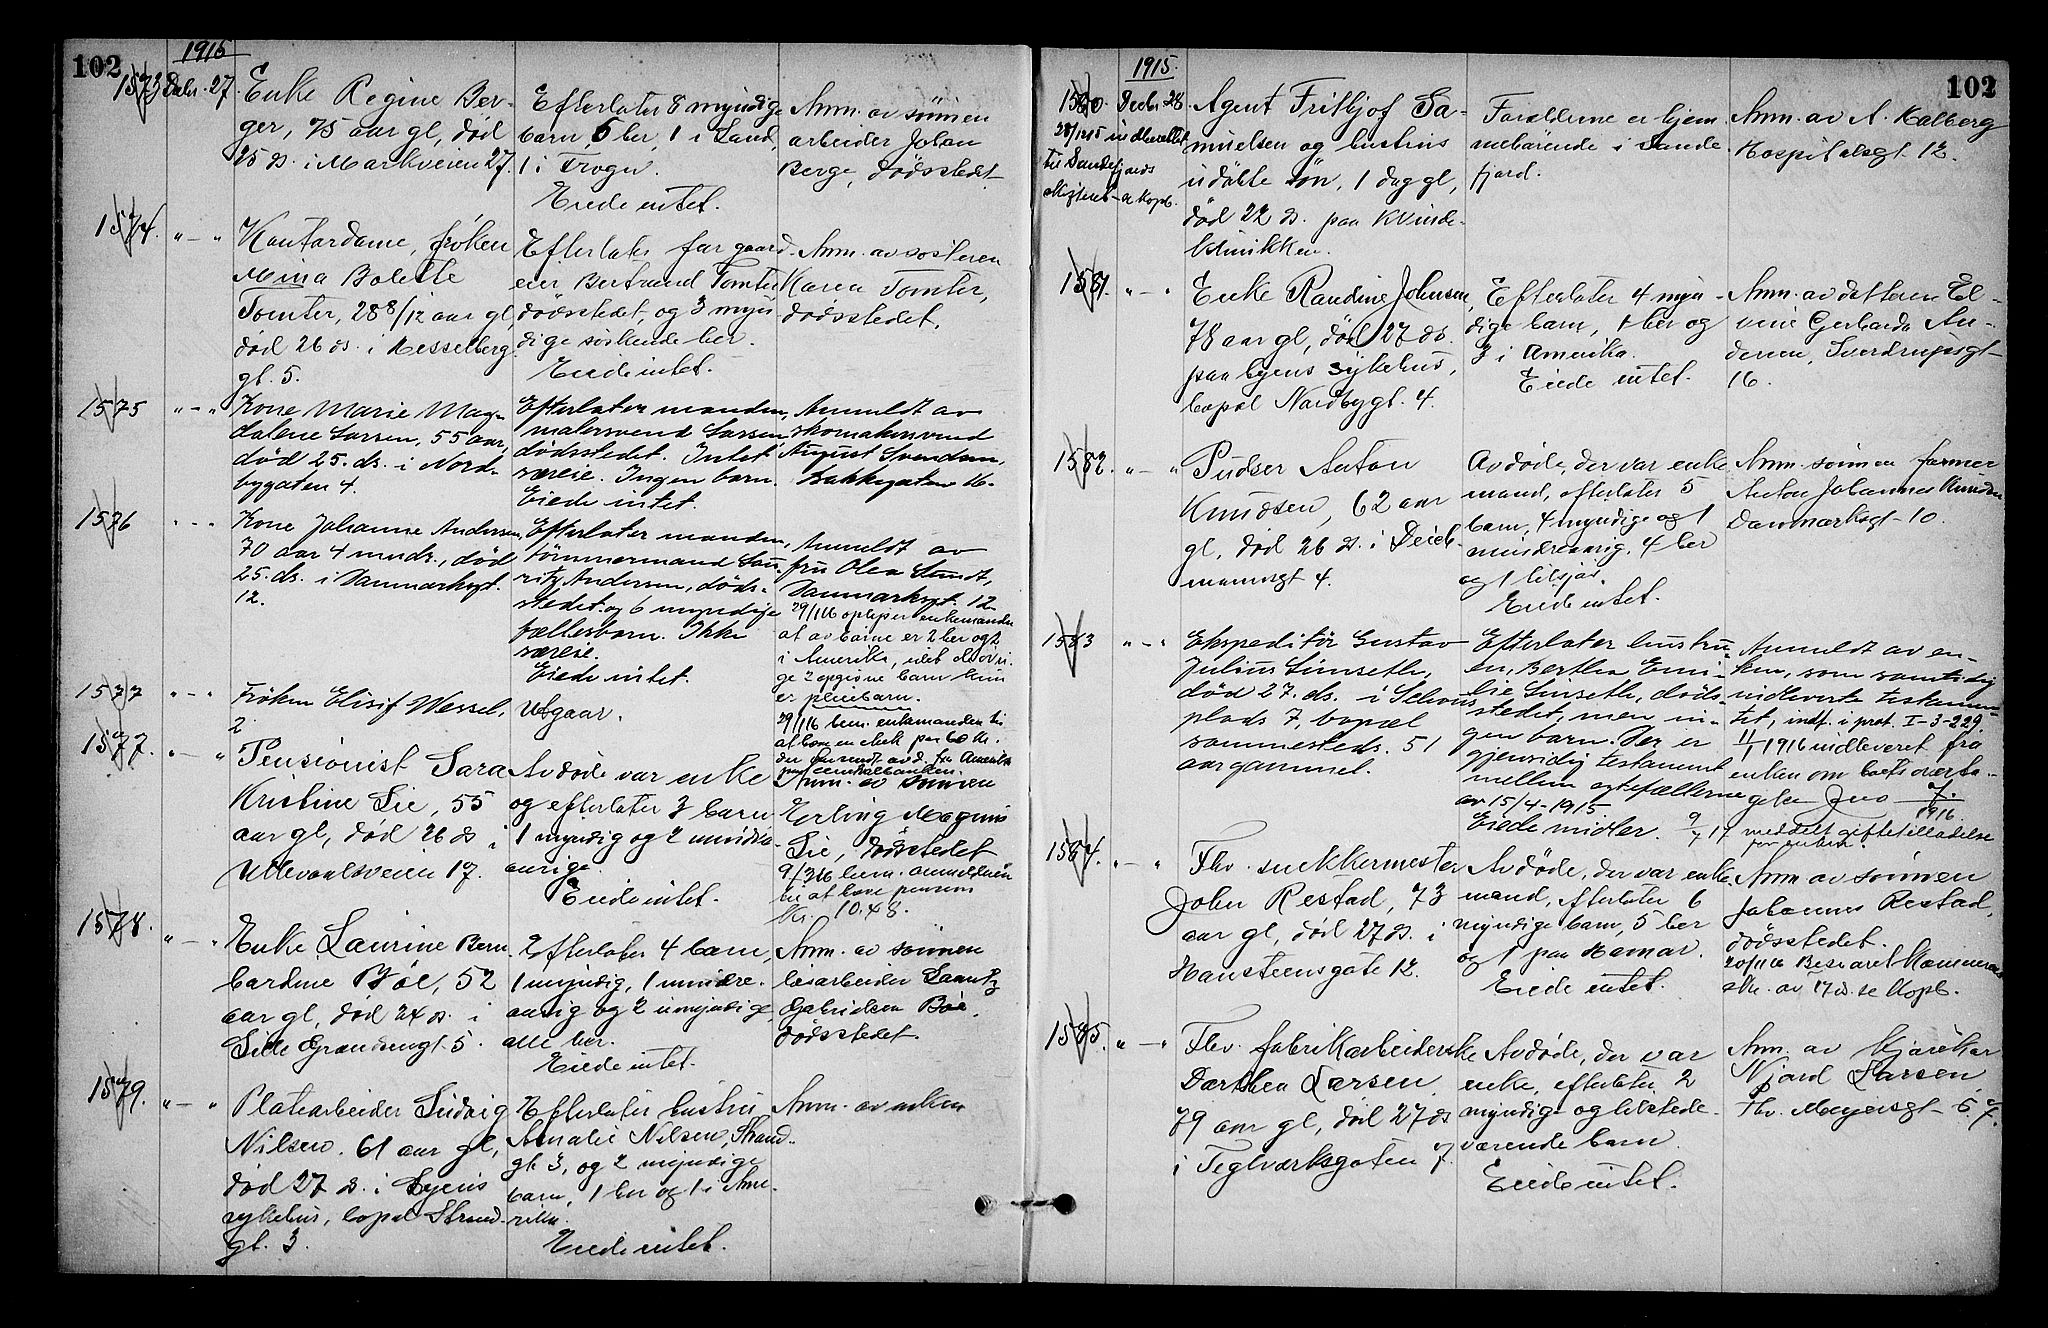 102
1915
1573 Decbr. 27.
Enke Regine Ber-
ger, 75 aar gl, død
25 ds. i Markveien 27.
Efterlater 8 myndige
barn, 6 her, 1 i Land,
1 i Trogn.
Eiede intet.
Anm. av sönnen
arbeider Johan
Berge, dödsstedet.
1574. " — "
Kontordame, fröken
Mina Bolette
Tomter, 28 8/12 aar gl,
död 26 ds. i Hesselberg
gt. 5.
Efterlater far gaard-
eier Bertrand Tomter
dödsstedet, og 3 myn
dige söskende her.
Eiede intet.
Anm. av sösteren
Karen Tomter,
dödsstedet.
1575 " — "
Kone Marie Mag-
dalene Larsen, 55 aar,
död 25. ds. i Nord-
bygaten 4.
Efterlater manden,
malersvend Larsen,
dödsstedet. Intet
særeie. Ingen barn.
Eiede intet.
Anmeldt av
skomakersvend
August Svendsen,
Bakkegaten 16.
1576 " — "
Kone Johanne Andersen,
70 aar 4 mnds., död
25. ds. i Danmarksgt.
12.
Efterlater manden,
tömmermand Lau-
ritz Andersen, döds-
stedet og 6 myndige
fællesbarn. Ikke
særeie.
Eiede intet.
Anmeldt av
fru Olea Sundt,
Danmarksgt. 12
29/1 16 oplyser enkemanden
at av barna er 2 her og 2
i Amerika, idet de övri-
ge 2 opgivne barn kun
er pleiebarn.
29/1 16 bem. enkemanden
at have en chek paa 60 Kr.
1577 " — "
Fröken Elisif Wessel,
Utgaar.
1577. " — "
Pensionist Sara
Kristine Lie, 55
aar gl, död 26 ds i
Ullevaalsveien 17.
Avdöde var enke
og efterlater 3 barn
1 myndig og 2 mindre-
aarige.
Eiede intet.
Anm. av sönnen
Herling Magnus
Lie, dödsstedet
9/3 16 bem. anmelderen
at have pension
Kr. 10.48.
1578. " — "
Enke Laurine Bern
hardine Böe, 52
aar gl, död 24 ds. i
Lille Grændsengt. 5.
Efterlater 4 barn,
1 myndig, 1 mindre-
aarig og 2 umyndige,
alle her.
Eiede intet.
Anm. av sönnen
lösarbeider Lauritz
Gabrielsen Böe,
dödsstedet.
1579. " — "
Platearbeider Ludvig
Nilsen, 61 aar gl,
död 27 ds. i Byens
sykehus, bopæl Strand
gt. 3.
Efterlater hustru
Amalie Nilsen, Strand-
gt. 3, og 2 myndige
barn, 1 her og 1 i Ame-
rika.
Eiede intet.
Anm. av enken
102
1915.
1580. Decbr 28
28/12 15 indberettet
til Sandefjords
Skifteret a Kopb.
Agent Fritbjof Sa-
muelsen og hustrus
udöbte sön, 1 dag gl,
död 22 ds. paa Kvinde-
klinikken.
Forældrene er hjem
mehörende i Sande-
fjord.
Anm. av A. Kalberg
Hospitalsgt. 12.
1581. " — "
Enke Randine Johnsen,
78 aar gl, död 27 ds.
paa byens sykehus,
bopæl Nordbygt. 4.
Efterlater 4 myn-
dige barn, 1 her og
3 i Amerika.
Eiede intet.
Anm. av datteren El-
vine Gerharda An-
dersen, Sverdrupsgt
16.
1582. " — "
Pudser Anton
Knudsen, 62 aar
gl, död 26 ds. i Deich-
mannsgt 4.
Avdöde, der var enke
mand, efterlater 5
barn, 4 myndige og 1
mindreaarig, 4 her
og 1 tilsjös.
Eiede intet.
Anm. sönnen former
Anton Johannes Knudsen
Danmarksgt. 10.
1583 " — "
Ekspeditör Gustav
Julius Simseth,
död 27. ds. i Schous
plads 7, bopæl
sammesteds. 51
aar gammel.
Efterlater hustru-
en, Berthea Emi-
lie Simseth, döds-
stedet, men in-
gen barn. Der er
gjensidig testament
mellem ægtefællerne
av 15/4-1915
Eiede midler.
Anmeldt av en-
ken, som samtidig
indleverte testamen-
tet, indf. i prot. I-3-229
11/1 1916 indleveret fra
enken om boets overta-
gelse
1916.
9/7 17 meddelt giftetilladelse
for enken.
1584. " — "
Fhv. snekkermester
John Restad, 73
aar gl, död 27 ds. i
Hansteensgate 12.
Avdöde, der var enke-
mand, efterlater 6
myndige barn, 5 her
og 1 paa Hamar.
Eiede intet.
Anm. av sönnen
Johannes Restad,
dödsstedet.
20/1 16 Besvaret Kæmneren
skr. av 17 ds. se Kopb.
1585. " — "
Fhv. fabrikarbeiderske
Dorthea Larsen,
79 aar gl, död 27 ds
i Teglverksgaten 7.
Avdöde, der var
enke, efterlater 2
myndige og tilstede-
værende barn.
Eiede intet.
Anm. av
Njord Larsen
Thv. Meyersgt. 5